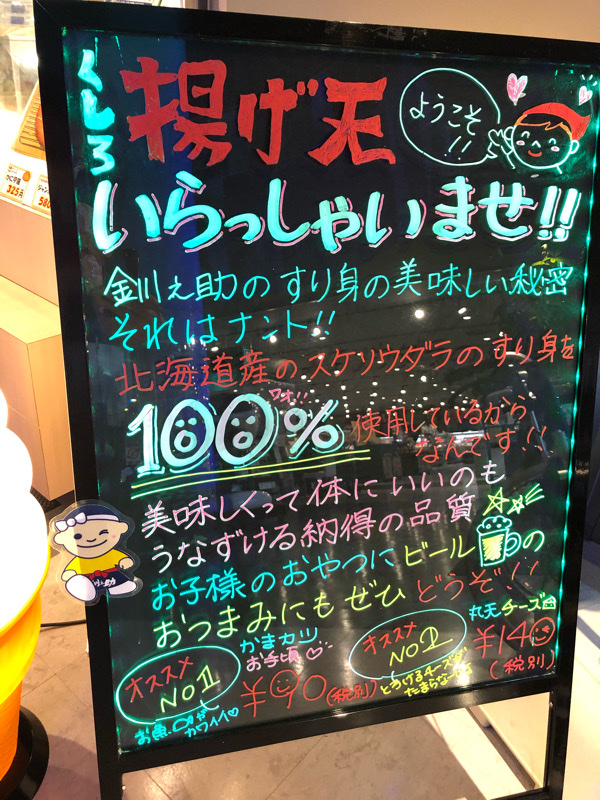 くしろ
揚げ天
ようこそ!!
いらっしゃいませ!!
金川之助のすり身の美味しい秘密
それはナント!!
北海道産のスケソウダラのすり身を
ワオ!!
100%使用しているから
なんです!!
美味しくって体にいいのも
うなずける納得の品質
お子様のおやつにビールの
おつまみにもぜひどうぞ!!
オススメ
NO1
かまカツ
お手頃♡
¥90(税別)
お魚の口が
カワイイ♡
オススメ
NO1
丸天チーズ
¥140
(税別)
とろけるチーズが
たまらな〜い
325円